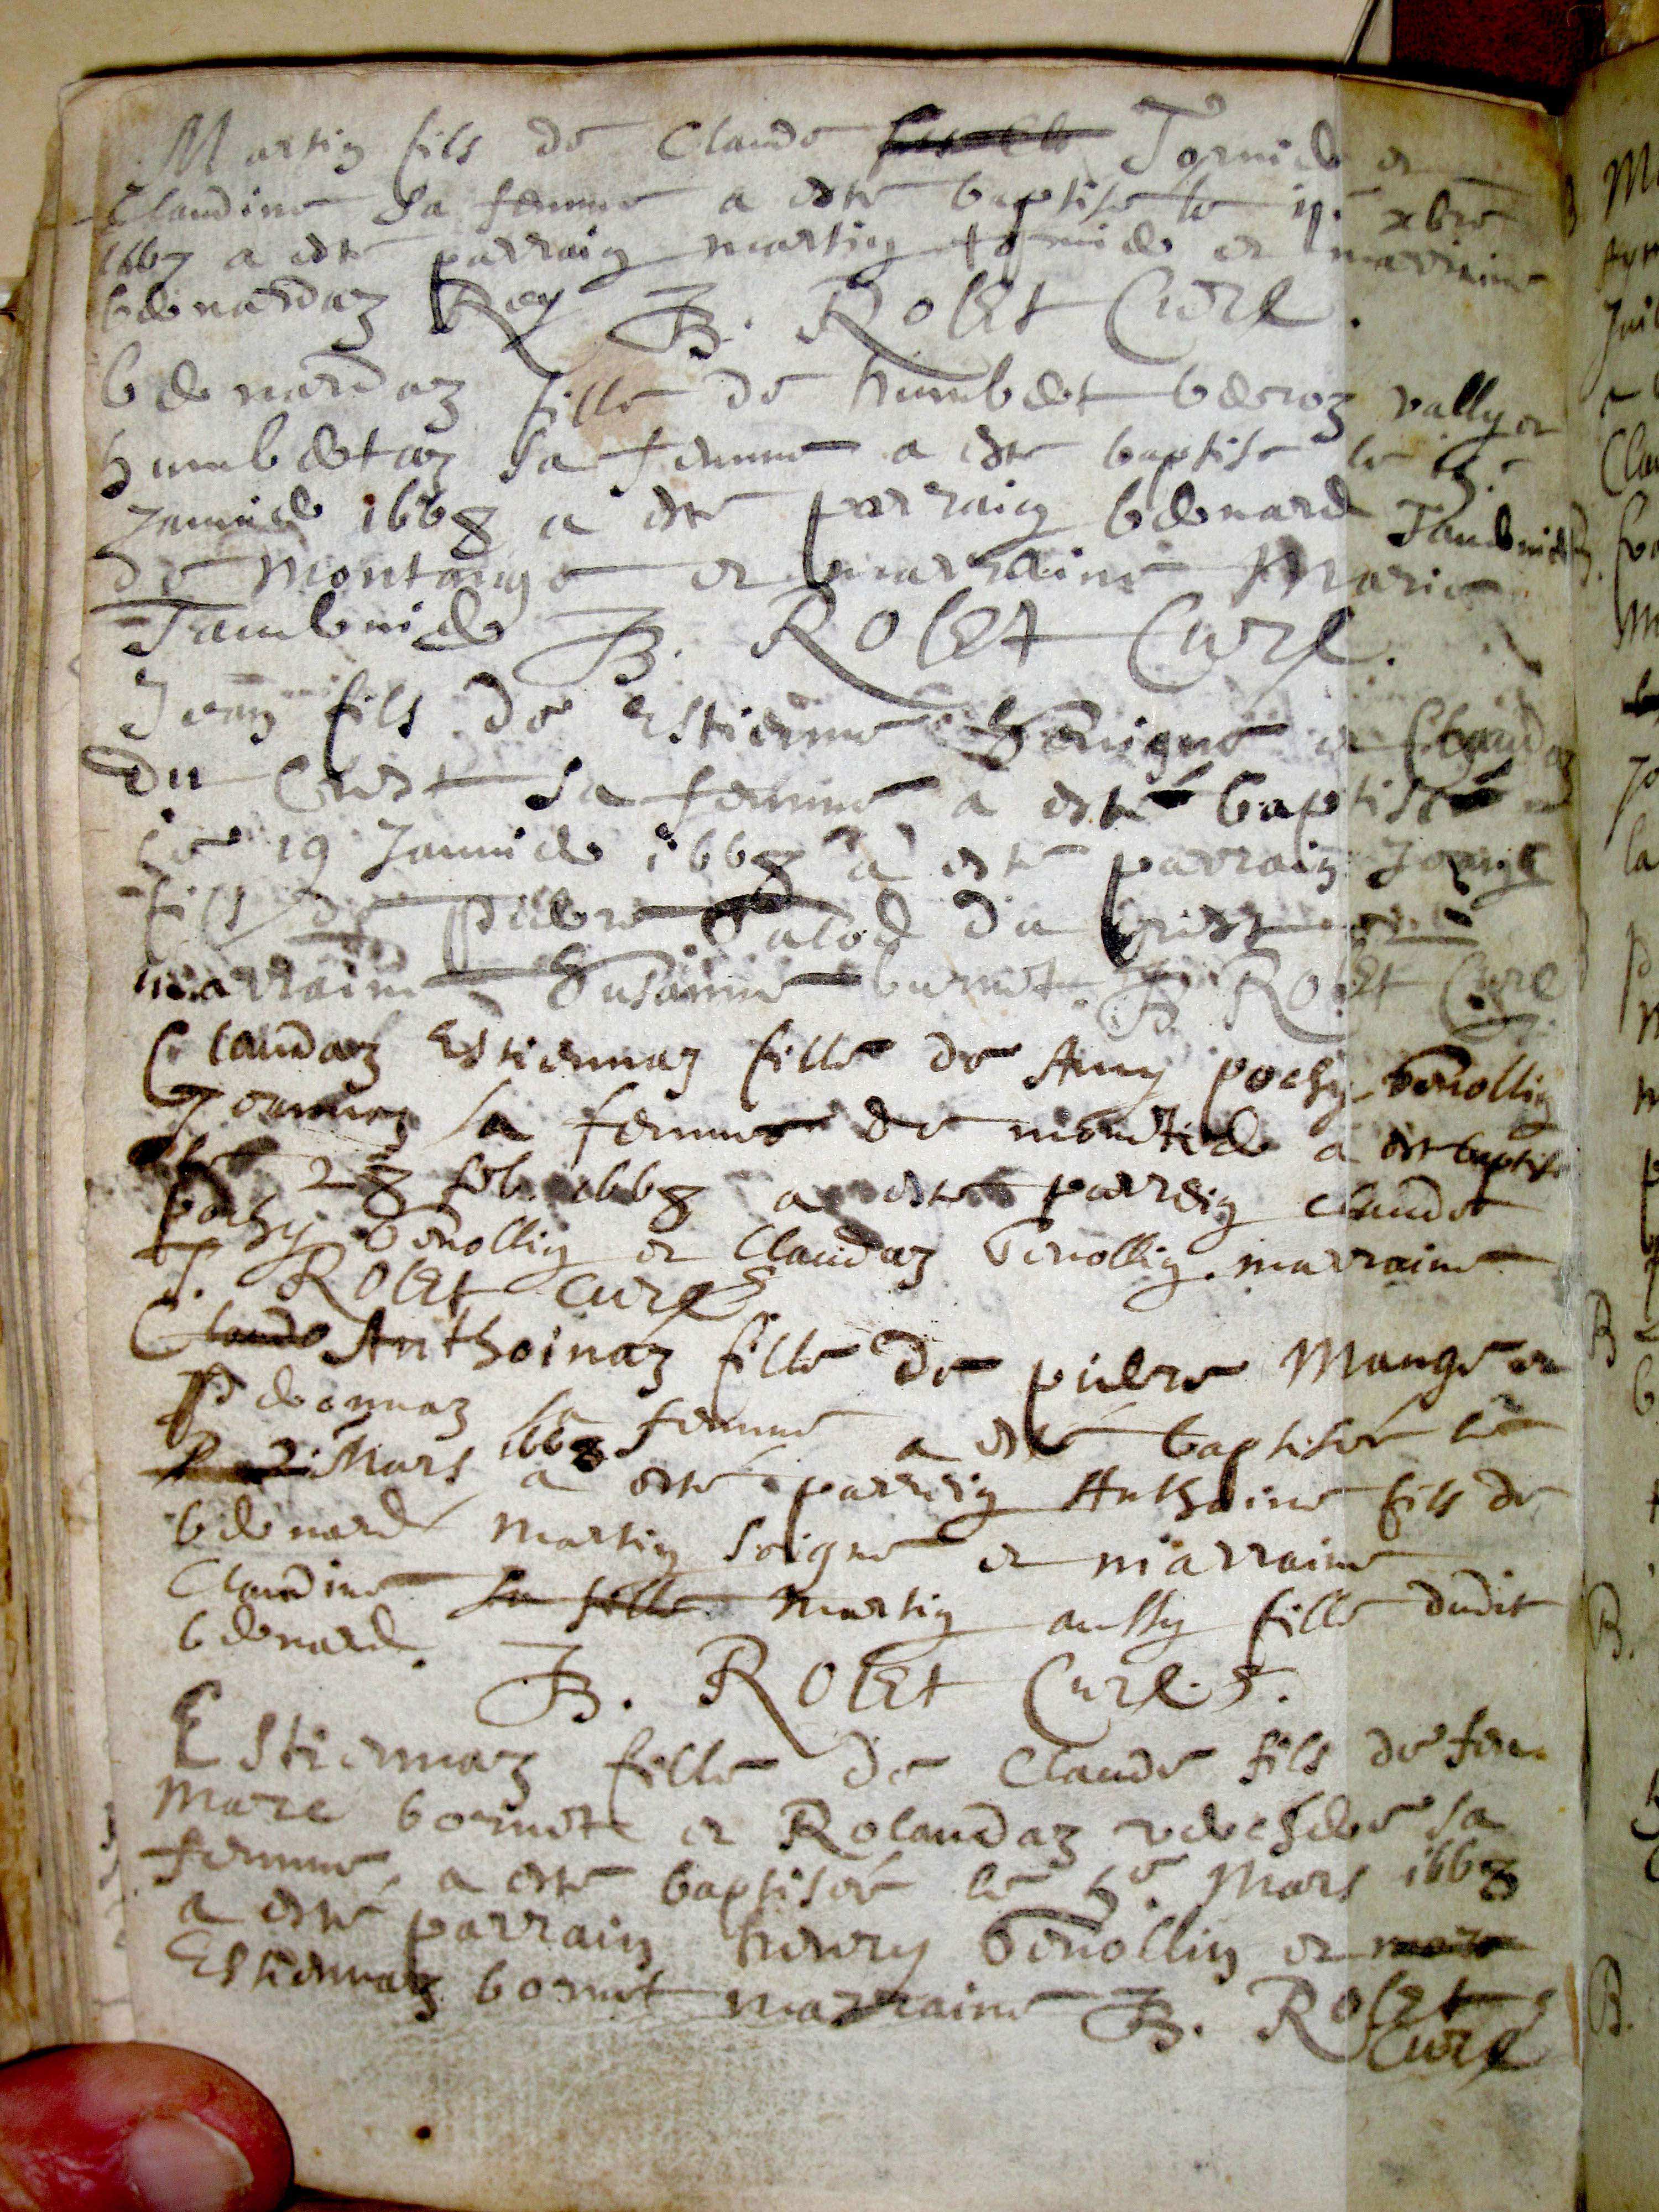 Martin fils de Claude Tornier et
Claudine sa femme a esté baptisé le xbre
1667 a esté parrain martin tornier et marraine
bernardaz Rey B. Rolet Curé.
bernardaz fille de humbert berroz vally et
humbertaz sa femme a esté baptisé le
Janvier 1668 a esté parrain bernard Tavernier
de Montange et marraine Marie
Tavernier B. Rolet Curé.
Jean fils de Estienne et Claudaz
du Crest sa femme a esté baptisé
le 19 Janvier 1668 a esté parrain
fils de pierre du Crest et
marraine Susanne burnet B. Rolet Curé
Claudaz Estiennaz fille de Amy pochy Benollin
Jeannaz sa femme de a esté baptisé
le 28 feb. 1668 a esté parrein claude
pochy Benollin et Claudaz Benollin marraine
B. Rolet Curé
Claude Anthoinaz fille de pierre Mange et
Pernnaz sa femme a esté baptisé le
Mars 1668 a esté parrein Anthoine fils de
bernard Martin Soigne et marraine
Claudine sa fille Martin aussy fille dudit
bernard. B. Rolet Curé.
Estiennaz fille de Claude fils de feu
Marc bornete et Rolandaz verchere sa
femme, a esté baptisée le 5e. Mars 1668
a esté parrain henry Benollin et
Estiennaz bornet marraine B. Rolet
Curé